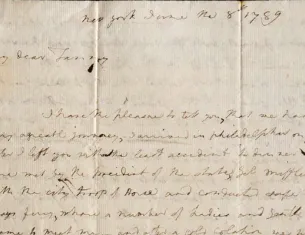 New york June the 8th 1789
my Dear Fanny
I have the pleasure to tell you, that we had
agreeable journey, I arrived in philadelphia on
I left you without the least accident to
met by the president of the state
with the city troop of Horse and conducted safe
ferry, where a number of Ladies and
came to meet me and after a cold Colation